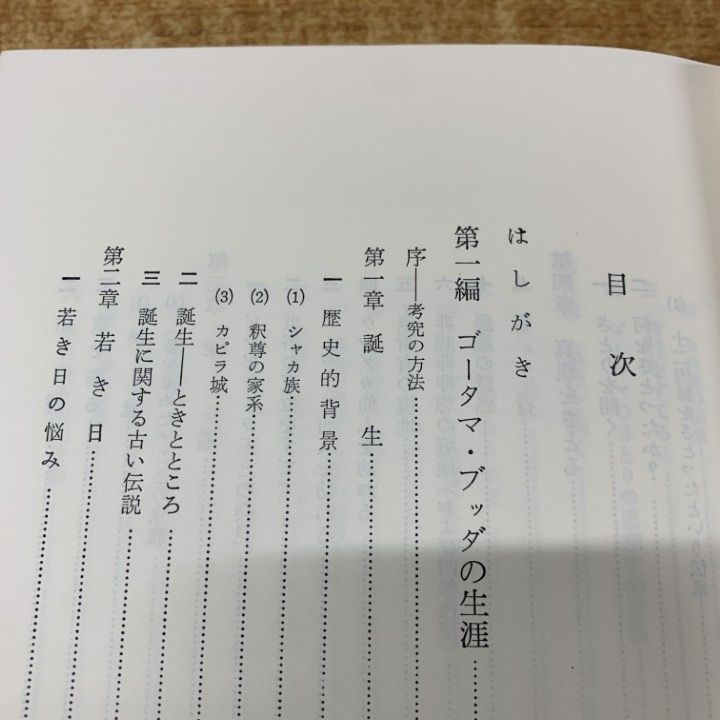 目次
はしがき
第一編 ゴータマ・ブッダの生涯
序――考究の方法
第一章 誕生
一 歴史的背景
(1) シャカ族
(2) 釈尊の家系
(3) カピラ城
二 誕生――ときとところ
三 誕生に関する古い伝説
第二章 若き日
一 若き日の悩み